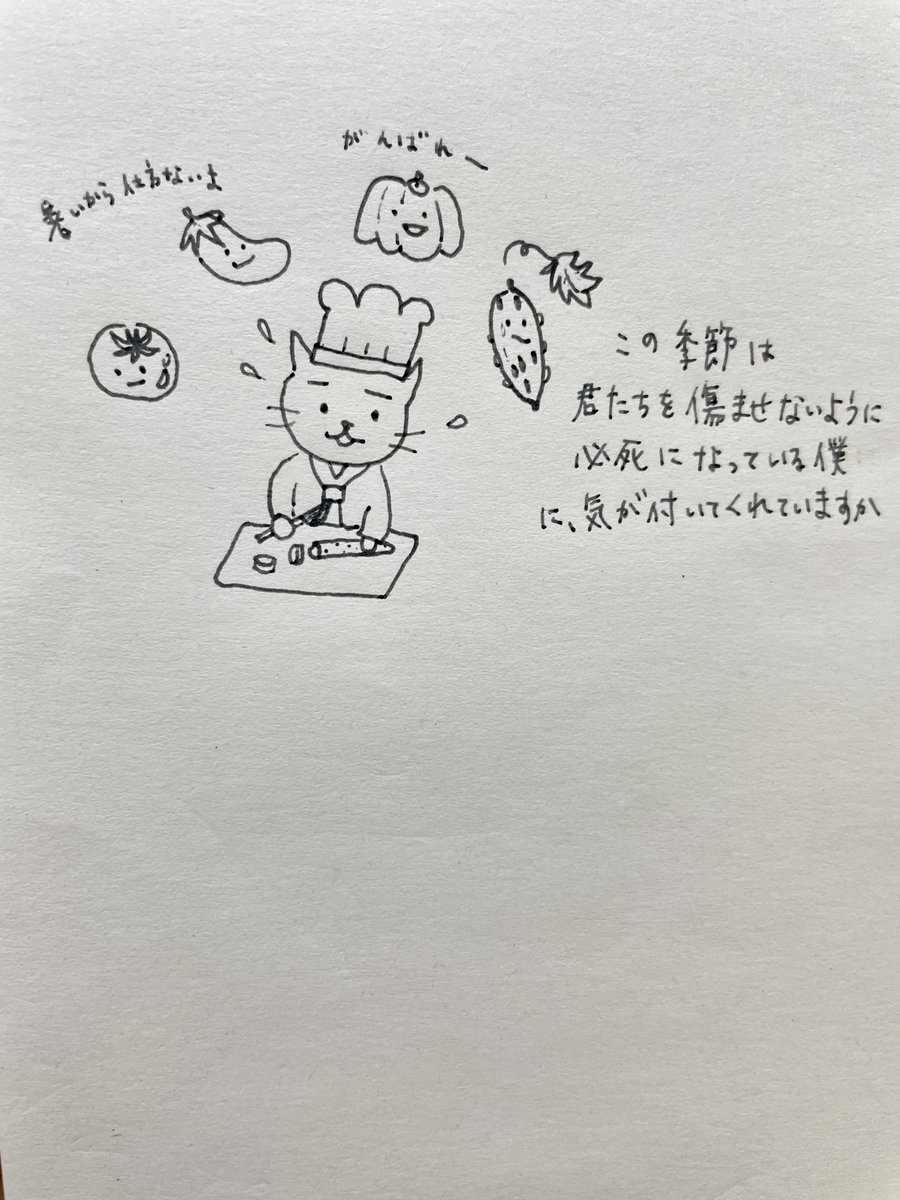 がんばれー
暑いから仕方ないよ
この季節は
君たちを傷ませないように
必死になっている僕
に、気が付いてくれていますか